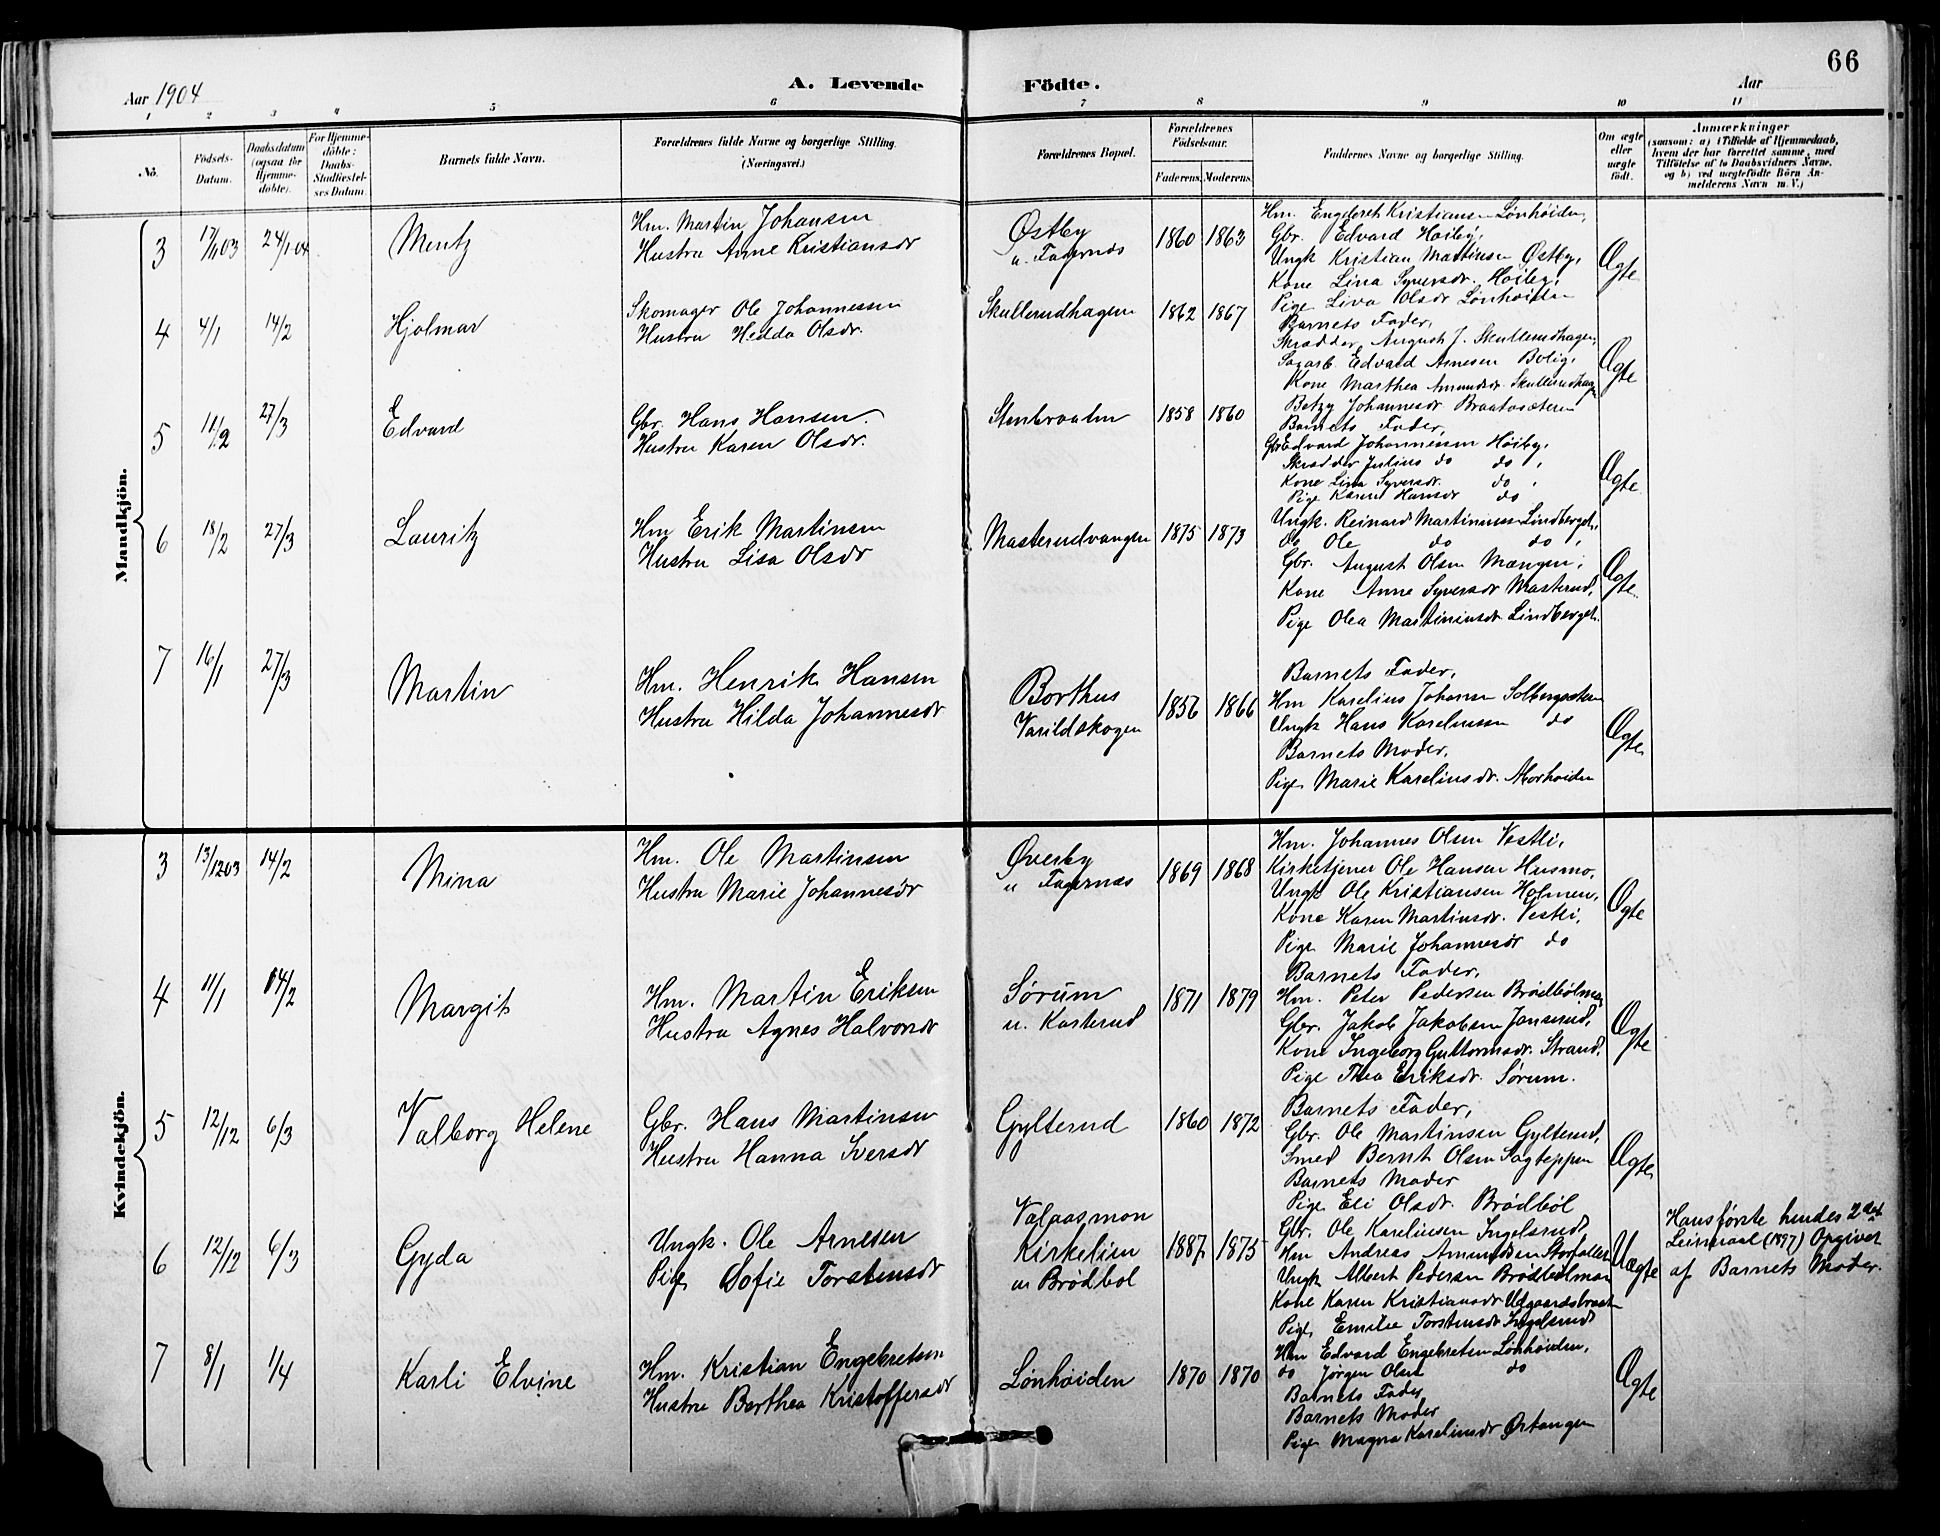 66
Aar 1904
A. Levende Födte.
Aar
1 2 3 4 5 6 7 8 9 10 11
No.
Födsels-Datum.
Daabsdatum (ogsaa for Hjemme-döbte).
For Hjemme-döbte: Daabs-Stadfæstel-ses Datum.
Barnets fulde Navn.
Forældrenes fulde Navne og borgerlige Stilling. (Næringsvei.)
Forældrenes Bopæl.
Forældrenes Födselsaar.
Faderens. Moderens.
Faddernes Navne og borgerlige Stilling.
Om ægte eller uægte født.
Anmærkninger
(saasom: a) i Tilfælde af Hjemmedaab, hvem der har forrettet samme, med Tilföielse af to Daabsvidners Navne, og b) ved uægtefödte Börn An-melderens Navn m. V.)
Mandkjön.
3 17/11 03 24/1 04 Mentz
Hm. Martin Johansen
Hustru Anne Kristiansdr
Østby
u. Fagernæs
1860 1863
Hm. Engebret Kristiansen Lønhøiden,
Gbr. Edvard Høiby,
Ungk Kristian Martinsen Østby,
Kone Lina Syversdr. Høiby,
Pige Lina Olsdr Lønhøiden
Ægte
4 4/1 14/2 Hjalmar
Skomager Ole Johannessen
Hustru Hedda Olsdr.
Skullerudhagen 1862 1867
Barnets Fader,
Skrædder August J. Skullerudhagen,
Sagarb. Edvard Arnesen Bolig,
Kone Marthea Amundsdr. Skullerudhagen
Betzy Johannesdr. Braatesæteren
Ægte
5 11/2 27/3 Edvard
Gbr. Hans Hansen.
Hustru Karen Olsdr.
Stenbraaten 1858 1860
Barnets Fader,
Gbr Edvard Johannessen Høiby,
Skrædder Julius do do,
Kone Lina Syversdr. do,
Pige Karen Hansdr do
Ægte
6 18/2 27/3 Lauritz
Hm Erik Martinsen
Hustru Lisa Olsdr
Masterudvangen 1875 1873
Ungk. Reinard Martiniussen Lindberget,
do Ole do do,
Gbr. August Olsen Mangen,
Kone Anne Syversdr Masterud,
Pige Olea Martiniusdr. Lindberget.
Ægte
7 16/1 27/3 Martin
Hm. Henrik Hansen
Hustru Hilda Johannesdr
Borthus
Varildskogen
1856 1866
Barnets Fader,
Hm Karelius Johansen Solbergsæteren
Ungk Hans Kareliussen do
Barnets Moder,
Pige Marie Kareliusdr. Morhøiden
Ægte
Kvindekjön.
3 13/12 03 14/2 Mina
Hm. Ole Martinsen
Hustru Marie Johannesdr
Øverby
u Fagernæs
1869 1868
Hm. Johannes Olsen Vestli,
Kirketjener Ole Hansen Husmo,
Ungk Ole Kristiansen Holmen,
Kone Karen Martinsdr. Vestli,
Pige Marie Johannesdr do
Ægte
4 11/1 14/2 Margit
Hm. Martin Eriksen
Hustru Agnes Halvorsdr
Sørum
u. Kasterud
1871 1879
Barnets Fader,
Hm. Peter Pedersen Brødbølmoen
Gbr. Jakob Jakobsen Janserud,
Kone Ingeborg Guttormsdr. Strand,
Pige Thea Eriksdr. Sørum.
Ægte
5 12/12 6/3 Valborg Helene
Gbr. Hans Martinsen
Hustru Hanna Iversdr
Gylterud 1860 1872
Barnets Fader,
Gbr. Ole Martinsen Gylterud,
Smed Bernt Olsen Sagteppen
Barnets Moder
Pige Eli Olsdr. Brødbøl
Ægte
6 12/12 6/3 Gyda
Ungk. Ole Arnesen
Pige Sofie Torstensdr
Valaasmon
Kirkelien
u Brødbøl
1887 1875
Gbr. Ole Kareliussen Ingelsrud,
Hm Andreas Amundsen Storfallet
Ungk Albert Pedersen Brødbølmoen
Kone Karen Kristiansdr Udgaardsbraaten
Pige Emilie Torstensdr Ingelsrud
Uægte
Hans første hendes 2det
Leiermaal (1897) Opgivet
af Barnets Moder.
7 8/1 1/4 Karli Elvine
Hm. Kristian Engebretsen
Hustru Berthea Kristoffersdr
Lønhøiden 1870 1870
Hm Edvard Engebretsen Lønhøiden,
do Jørgen Olsen do
Barnets Fader
Barnets Moder
Pige Magna Kareliusdr Ørtangen
Ægte